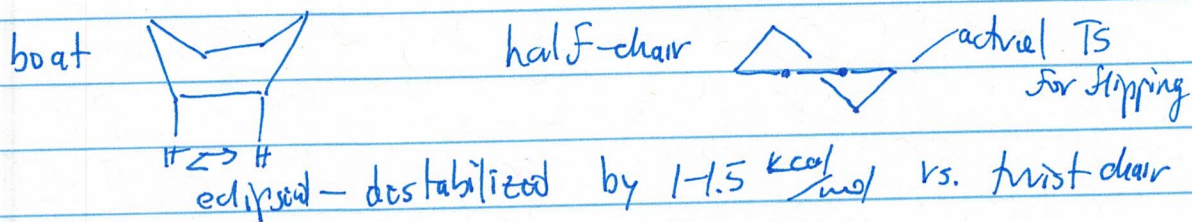 boat half-chair actual TS
for flipping
H <-> H
eclipsed - destabilized by 1-1.5 kcal/mol vs. twist chair